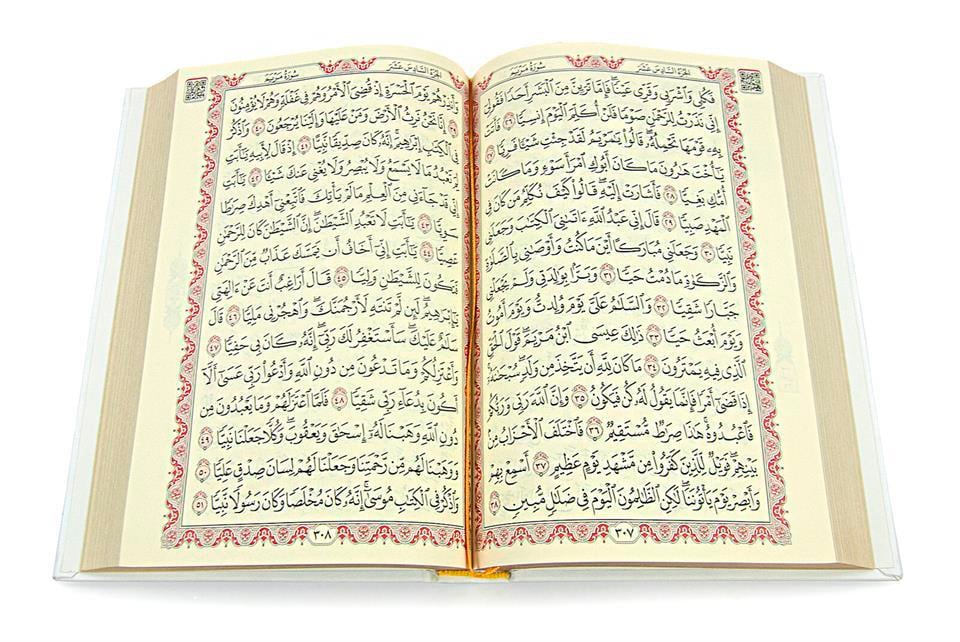 الجزء السادس عشر سورة مريم
فَكُلِى وَٱشْرَبِى وَقَرِّى عَيْنًا ۖ فَإِمَّا تَرَيِنَّ مِنَ ٱلْبَشَرِ أَحَدًا فَقُولِىٓ
إِنِّى نَذَرْتُ لِلرَّحْمَٰنِ صَوْمًا فَلَنْ أُكَلِّمَ ٱلْيَوْمَ إِنسِيًّا ٢٦ فَأَتَتْ
بِهِۦ قَوْمَهَا تَحْمِلُهُۥ ۖ قَالُوا۟ يَٰمَرْيَمُ لَقَدْ جِئْتِ شَيْـًٔا فَرِيًّا ٢٧
يَٰٓأُخْتَ هَٰرُونَ مَا كَانَ أَبُوكِ ٱمْرَأَ سَوْءٍ وَمَا كَانَتْ
أُمُّكِ بَغِيًّا ٢٨ فَأَشَارَتْ إِلَيْهِ ۖ قَالُوا۟ كَيْفَ نُكَلِّمُ مَن كَانَ فِى
ٱلْمَهْدِ صَبِيًّا ٢٩ قَالَ إِنِّى عَبْدُ ٱللَّهِ ءَاتَىٰنِىَ ٱلْكِتَٰبَ وَجَعَلَنِى
نَبِيًّا ٣٠ وَجَعَلَنِى مُبَارَكًا أَيْنَ مَا كُنتُ وَأَوْصَٰنِى بِٱلصَّلَوٰةِ
وَٱلزَّكَوٰةِ مَا دُمْتُ حَيًّا ٣١ وَبَرًّۢا بِوَٰلِدَتِى وَلَمْ يَجْعَلْنِى
جَبَّارًا شَقِيًّا ٣٢ وَٱلسَّلَٰمُ عَلَىَّ يَوْمَ وُلِدتُّ وَيَوْمَ أَمُوتُ
وَيَوْمَ أُبْعَثُ حَيًّا ٣٣ ذَٰلِكَ عِيسَى ٱبْنُ مَرْيَمَ ۚ قَوْلَ ٱلْحَقِّ
ٱلَّذِى فِيهِ يَمْتَرُونَ ٣٤ مَا كَانَ لِلَّهِ أَن يَتَّخِذَ مِن وَلَدٍ ۖ سُبْحَٰنَهُۥٓ ۚ
إِذَا قَضَىٰٓ أَمْرًا فَإِنَّمَا يَقُولُ لَهُۥ كُن فَيَكُونُ ٣٥ وَإِنَّ ٱللَّهَ رَبِّى وَرَبُّكُمْ
فَٱعْبُدُوهُ ۚ هَٰذَا صِرَٰطٌ مُّسْتَقِيمٌ ٣٦ فَٱخْتَلَفَ ٱلْأَحْزَابُ مِنۢ
بَيْنِهِمْ ۖ فَوَيْلٌ لِّلَّذِينَ كَفَرُوا۟ مِن مَّشْهَدِ يَوْمٍ عَظِيمٍ ٣٧ أَسْمِعْ بِهِمْ
وَأَبْصِرْ يَوْمَ يَأْتُونَنَا ۖ لَٰكِنِ ٱلظَّٰلِمُونَ ٱلْيَوْمَ فِى ضَلَٰلٍ مُّبِينٍ ٣٨
٣٠٧
الجزء السادس عشر سورة مريم
وَأَنذِرْهُمْ يَوْمَ ٱلْحَسْرَةِ إِذْ قُضِىَ ٱلْأَمْرُ وَهُمْ فِى غَفْلَةٍ وَهُمْ لَا يُؤْمِنُونَ
٣٩ إِنَّا نَحْنُ نَرِثُ ٱلْأَرْضَ وَمَنْ عَلَيْهَا وَإِلَيْنَا يُرْجَعُونَ ٤٠ وَٱذْكُرْ
فِى ٱلْكِتَٰبِ إِبْرَٰهِيمَ ۚ إِنَّهُۥ كَانَ صِدِّيقًا نَّبِيًّا ٤١ إِذْ قَالَ لِأَبِيهِ يَٰٓأَبَتِ
لِمَ تَعْبُدُ مَا لَا يَسْمَعُ وَلَا يُبْصِرُ وَلَا يُغْنِى عَنكَ شَيْـًٔا ٤٢ يَٰٓأَبَتِ
إِنِّى قَدْ جَآءَنِى مِنَ ٱلْعِلْمِ مَا لَمْ يَأْتِكَ فَٱتَّبِعْنِىٓ أَهْدِكَ صِرَٰطًا
سَوِيًّا ٤٣ يَٰٓأَبَتِ لَا تَعْبُدِ ٱلشَّيْطَٰنَ ۖ إِنَّ ٱلشَّيْطَٰنَ كَانَ لِلرَّحْمَٰنِ
عَصِيًّا ٤٤ يَٰٓأَبَتِ إِنِّىٓ أَخَافُ أَن يَمَسَّكَ عَذَابٌ مِّنَ ٱلرَّحْمَٰنِ
فَتَكُونَ لِلشَّيْطَٰنِ وَلِيًّا ٤٥ قَالَ أَرَاغِبٌ أَنتَ عَنْ ءَالِهَتِى
يَٰٓإِبْرَٰهِيمُ ۖ لَئِن لَّمْ تَنتَهِ لَأَرْجُمَنَّكَ ۖ وَٱهْجُرْنِى مَلِيًّا ٤٦ قَالَ
سَلَٰمٌ عَلَيْكَ ۖ سَأَسْتَغْفِرُ لَكَ رَبِّىٓ ۖ إِنَّهُۥ كَانَ بِى حَفِيًّا ٤٧
وَأَعْتَزِلُكُمْ وَمَا تَدْعُونَ مِن دُونِ ٱللَّهِ وَأَدْعُوا۟ رَبِّى عَسَىٰٓ أَلَّآ
أَكُونَ بِدُعَآءِ رَبِّى شَقِيًّا ٤٨ فَلَمَّا ٱعْتَزَلَهُمْ وَمَا يَعْبُدُونَ مِن
دُونِ ٱللَّهِ وَهَبْنَا لَهُۥٓ إِسْحَٰقَ وَيَعْقُوبَ ۖ وَكُلًّا جَعَلْنَا نَبِيًّا ٤٩
وَوَهَبْنَا لَهُم مِّن رَّحْمَتِنَا وَجَعَلْنَا لَهُمْ لِسَانَ صِدْقٍ عَلِيًّا ٥٠
وَٱذْكُرْ فِى ٱلْكِتَٰبِ مُوسَىٰٓ ۚ إِنَّهُۥ كَانَ مُخْلَصًا وَكَانَ رَسُولًا نَّبِيًّا ٥١
٣٠٨